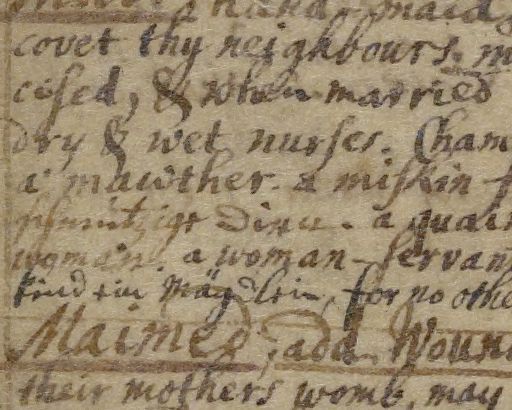 a hand-maid
covet thy neighbours. m
cised, & when married
dry & wet nurses. Cham
a mawther. a miskin f
Dirn. a quain
woman. a woman-servant
kind ein Mägdlein, for no othe
Maimed, add. Woun
their mothers womb, may